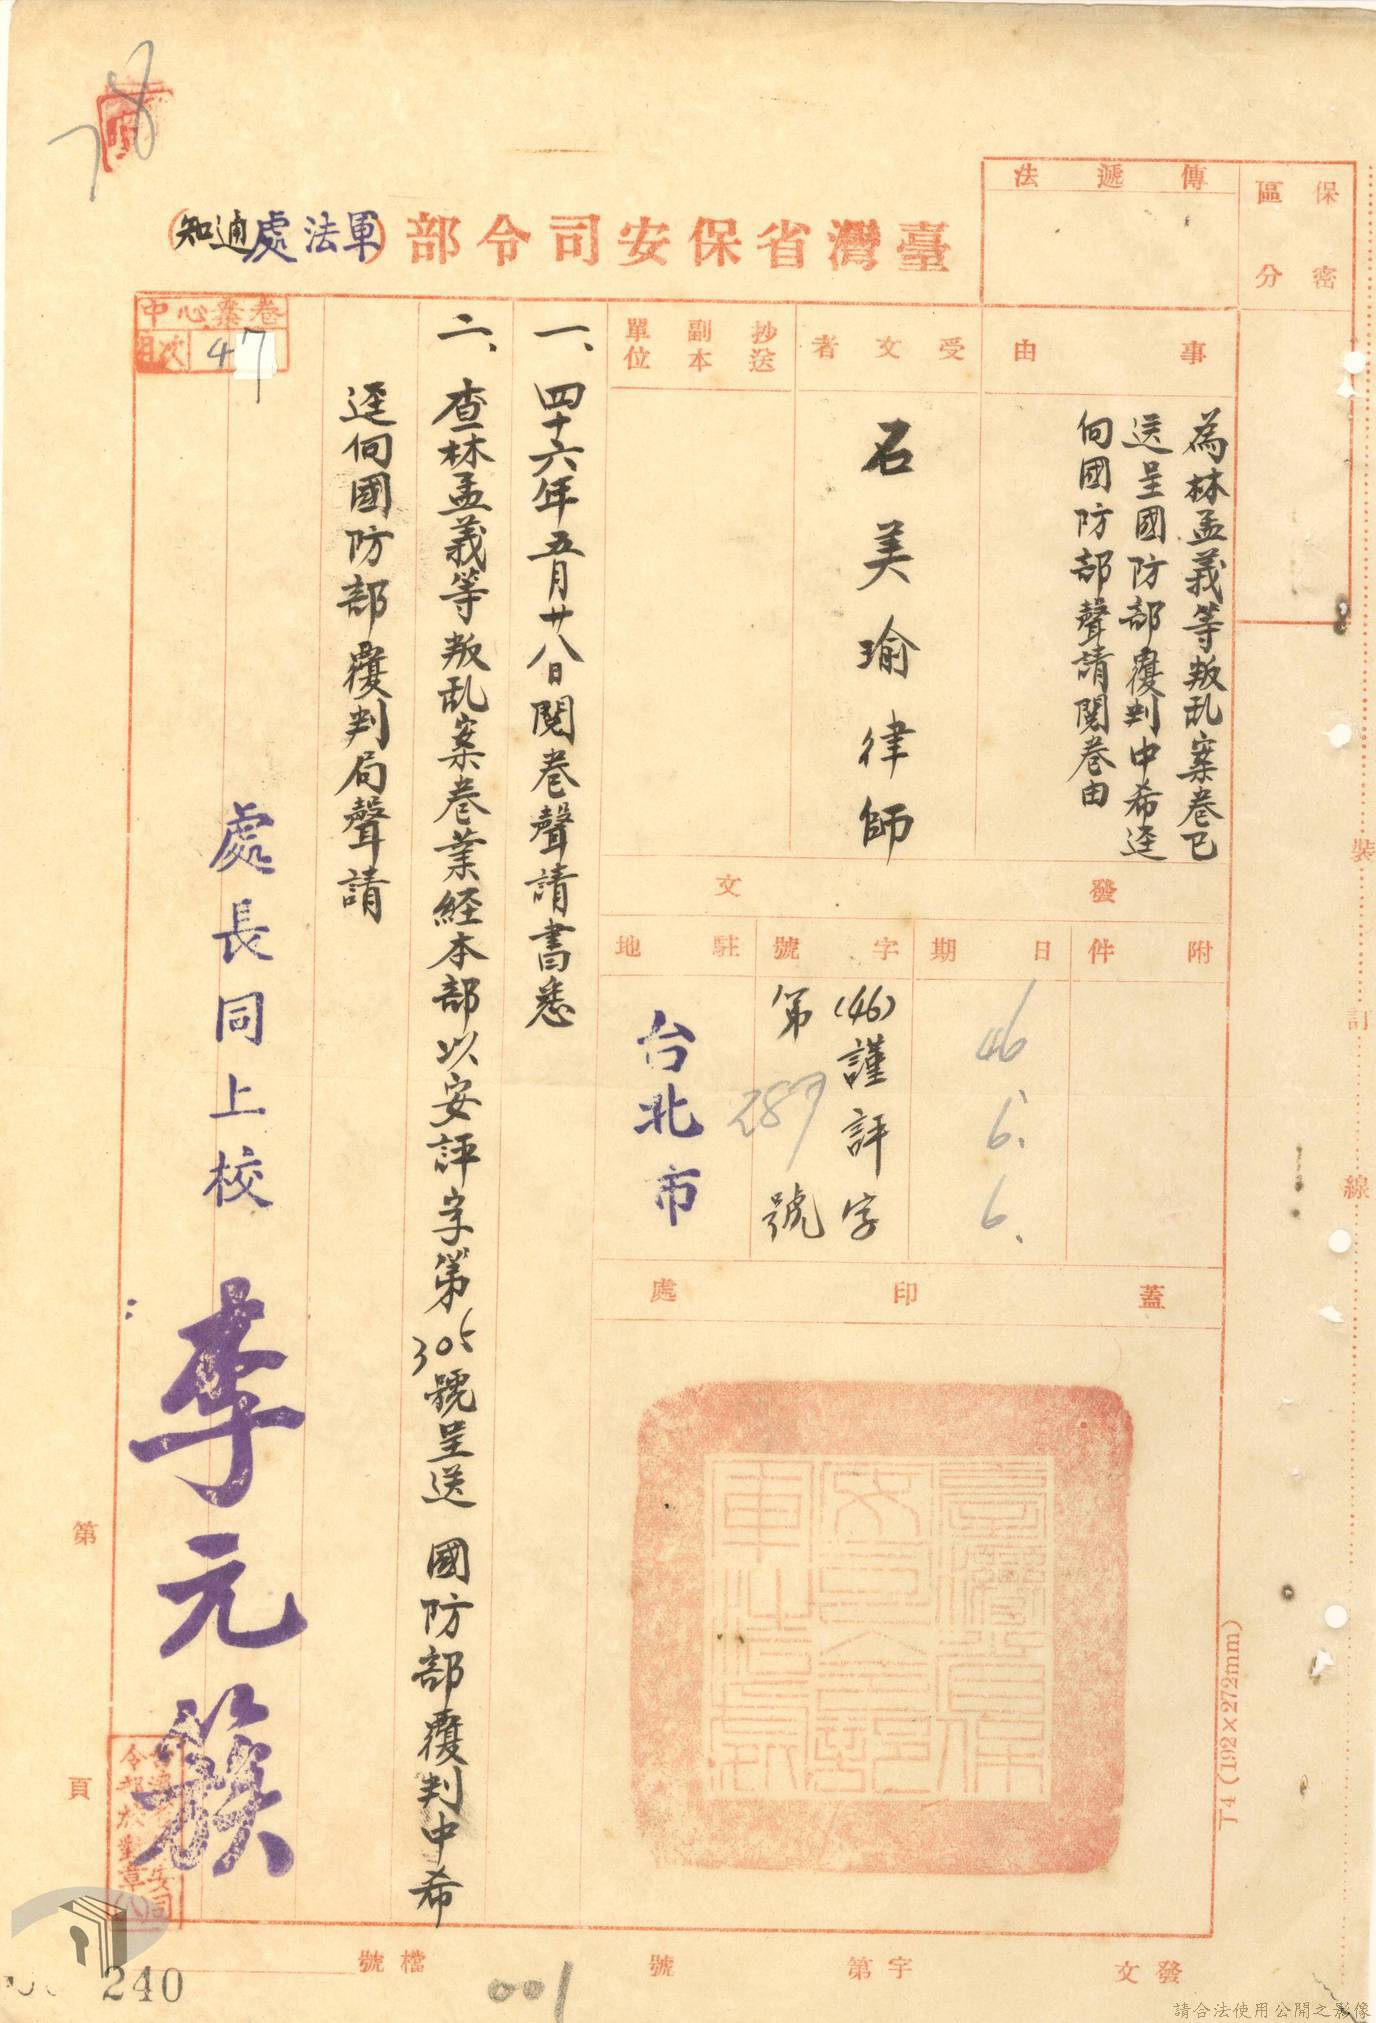 臺灣省保安司令部(軍法處)通知
保密
區分
傳遞法
事由
為林孟義等叛乱案卷已
送呈國防部覆判中希逕
向國防部聲請閱卷由
受文者
石美瑜律師
抄送
副本
單位
發文
附件
日期
46
6.
6.
字號
(46)謹評字
第287號
駐地
台北市
蓋印處
一、四十六年五月廿八日閱卷聲請書悉
二、查林孟義等叛乱案卷業経本部以安評字第305號呈送國防部覆判中希
逕向國防部覆判局聲請
處長同上校
李元簇
卷案心中
目次
47
臺灣省保
安司令部
軍法處
裝
訂
線
T4(192×272mm)
第
頁
發文
字第
號
檔號
001
240
78
請合法使用公開之影像